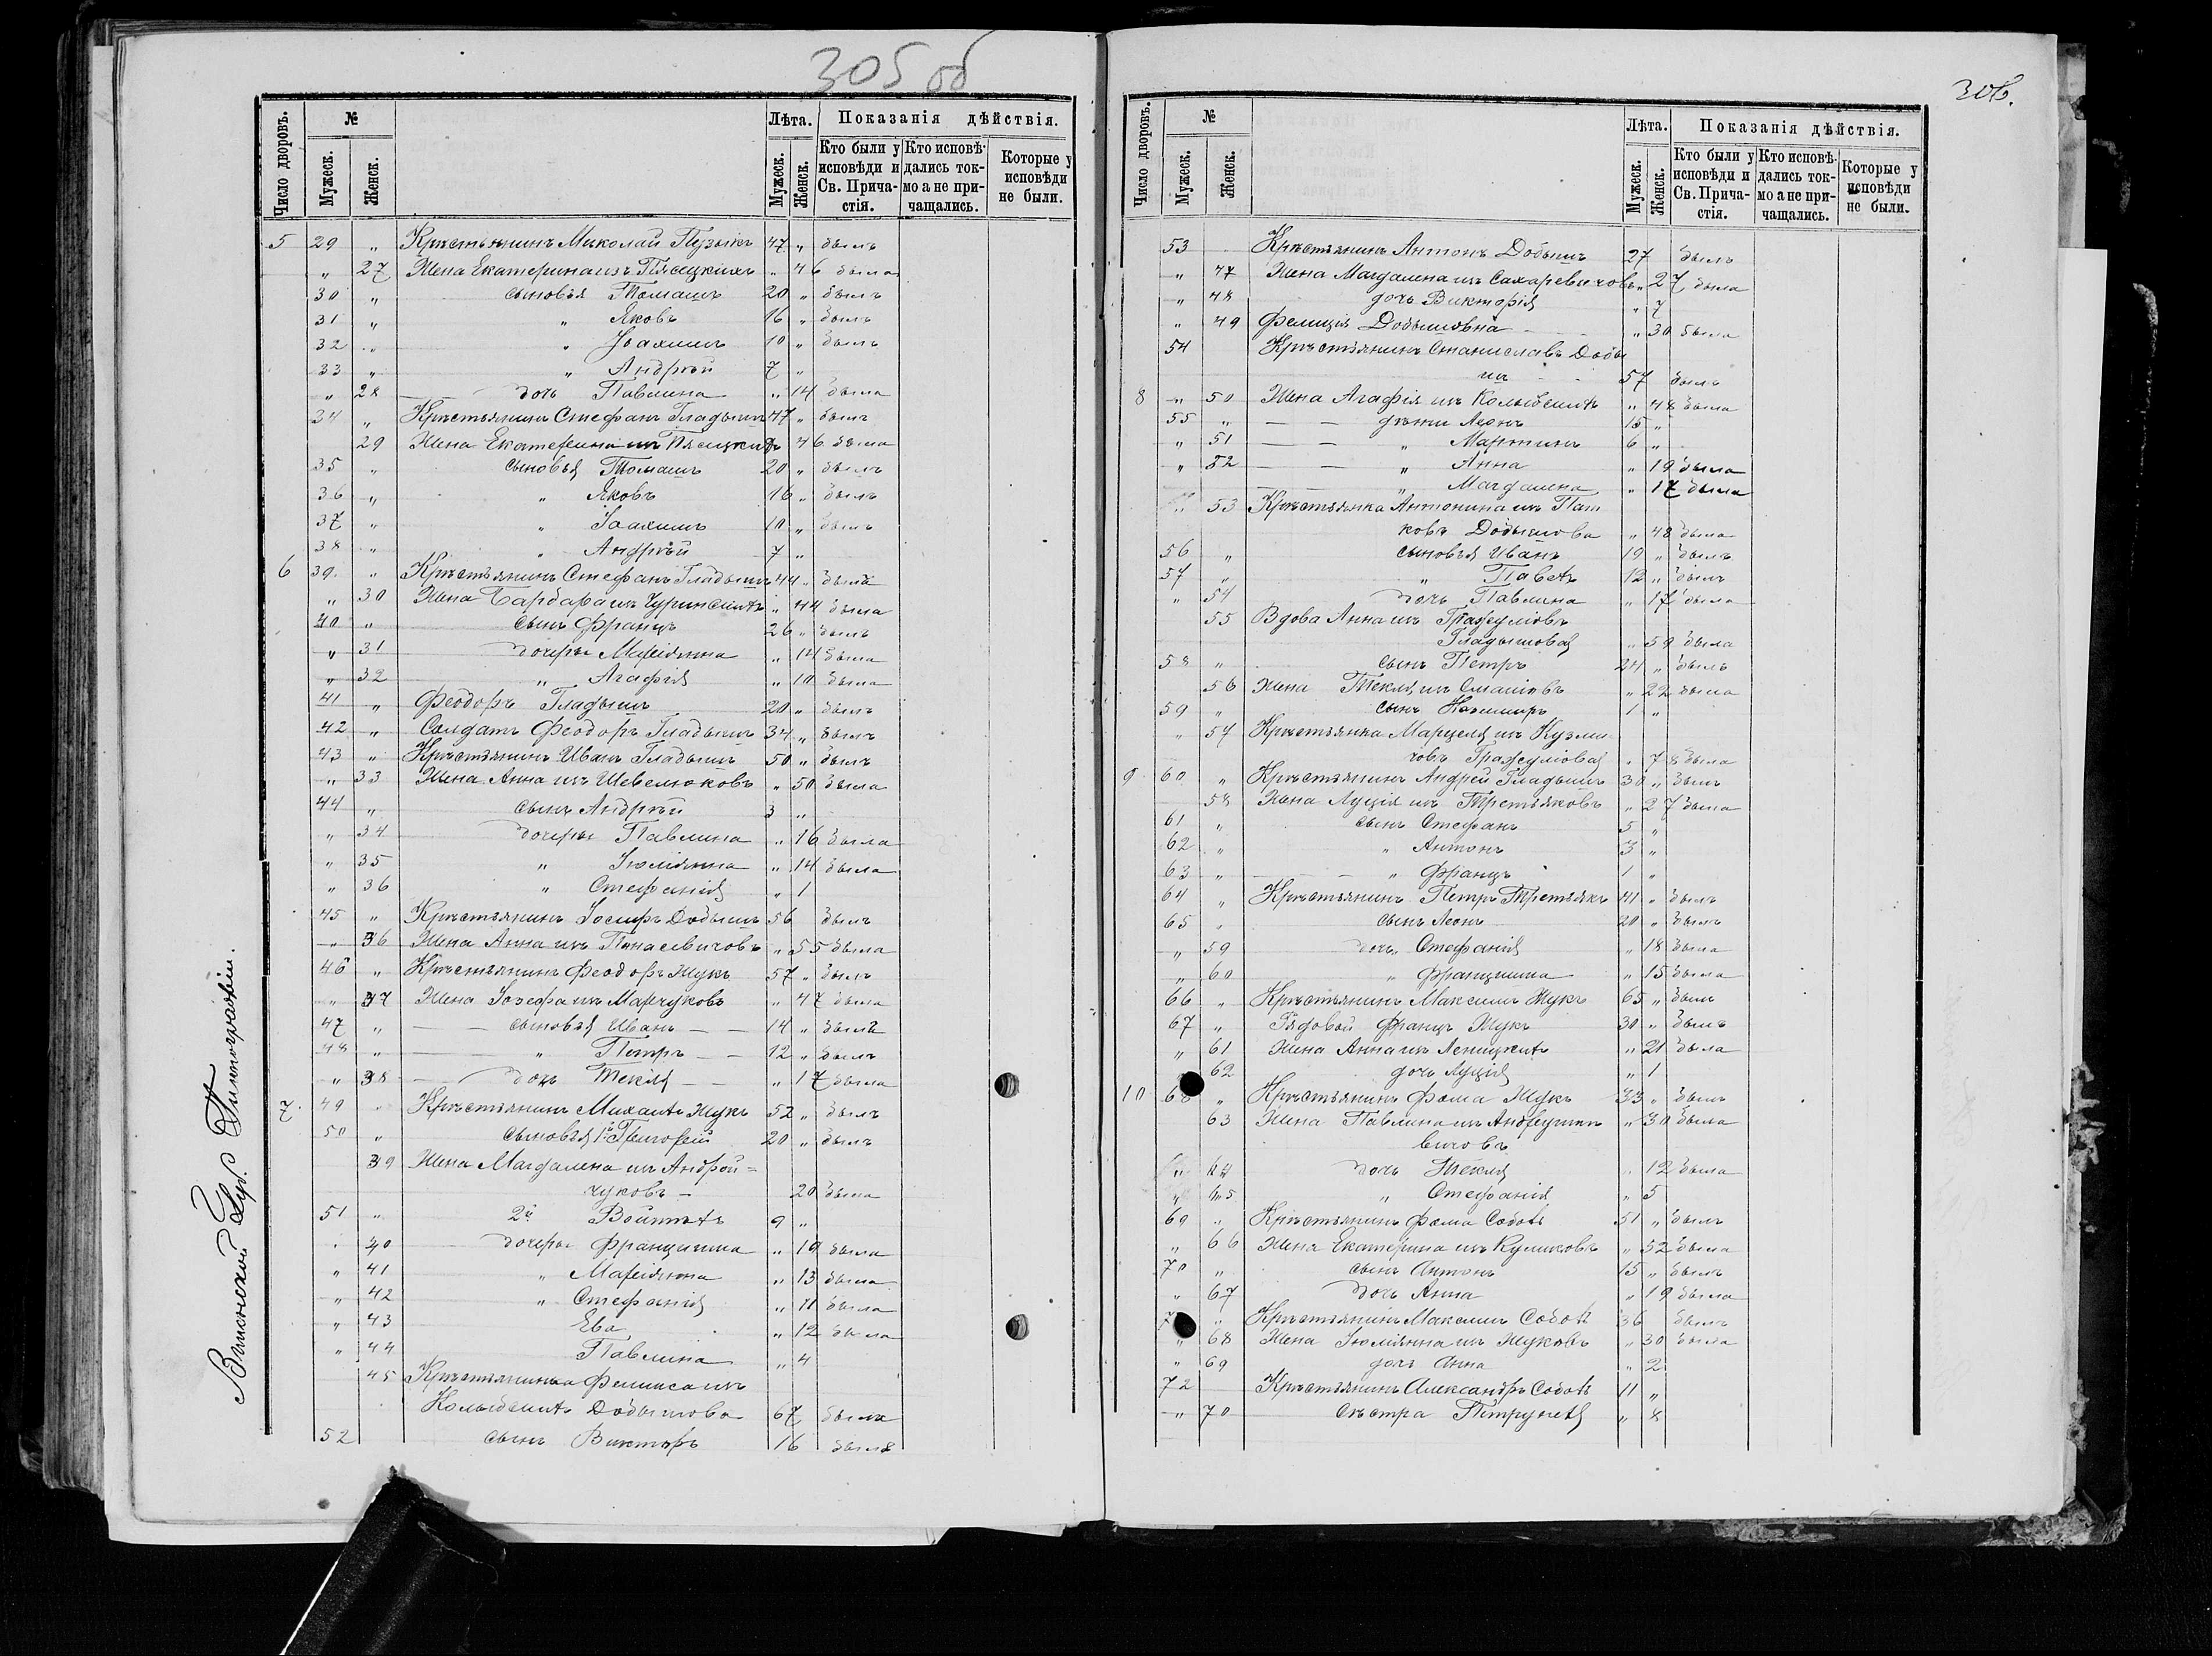 305 об
Число дворовъ. № Лѣта. Показанія дѣйствія.
Мужеск. Женск. Мужеск. Женск. Кто были у исповѣди и Св. Прича-стія. Кто исповѣ-дались ток-мо а не при-чащались. Которые у исповѣди не были.
5 29 „ Крестьянинъ Миколай Пузыкъ 47 „ былъ
„ 27 Жена Екатерина изъ Пясецкихъ „ 46 была
30 „ сыновья Томашъ 20 „ былъ
31 „ „ Яковъ 16 „ былъ
32 „ „ Іоахимъ 10 „ былъ
33 „ „ Андрей 7 „
„ 28 дочь Павлина „ 14 была
34 „ Крестьянинъ Стефанъ Гладышъ 47 „ былъ
29 Жена Екатерина изъ Пясецкихъ 46 была
35 „ сыновья Томашъ 20 „ былъ
36 „ „ Яковъ 16 „ былъ
37 „ „ Іоахимъ 10 „ былъ
38 „ „ Андрей 7 „
6 39 „ Крестьянинъ Стефанъ Гладышъ 44 „ былъ
„ 30 Жена Барбара изъ „ 44 была
40 „ сынъ Францъ 26 „ былъ
„ 31 дочери Маріянна „ 14 была
„ 32 „ Агафія „ 10 была
41 „ Феодоръ Гладышъ 20 „ былъ
42 „ Солдатъ Феодоръ Гладышъ 34 „ былъ
43 „ Крестьянинъ Иванъ Гладышъ 50 „ былъ
„ 33 Жена Анна изъ Шевелюковъ „ 50 была
44 „ сынъ Андрей 3 „
„ 34 дочери Павлина „ 16 была
„ 35 „ Іюліянна „ 14 была
„ 36 „ Стефанія „ 1
45 „ Крестьянинъ Іосифъ Добышъ 56 былъ
„ 36 Жена Анна изъ Панасевичовъ „ 55 была
46 „ Крестьянинъ Феодоръ Жукъ 57 „ былъ
„ 37 Жена Іозефа изъ Марчуковъ „ 47 была
47 „ — — сыновья Иванъ — — 14 „ былъ
48 „ „ Петръ — — 12 „ былъ
„ 38 — дочь Текля — — „ 17 была
7 49 „ Крестьянинъ Михаилъ Жукъ 52 „ былъ
50 „ сыновья 1й Григорій 20 „ былъ
39 Жена Магдалена изъ Андрой=
чуковъ — 20 была
51 „ 2й Войтехъ 9 „
„ 40 дочери Францишка „ 19 была
„ 41 „ Маріянна „ 13 была
„ 42 „ Стефанія „ 11 была
„ 43 Ева „ 12 была
„ 44 Павлина „ 4
45 Крестьянинка Фелиціа изъ
Добышова 67 была
52 сынъ Викторъ 16 былъ
Виленской Губ. Типографіи.
306.
Число дворовъ. № Лѣта. Показанія дѣйствія.
Мужеск. Женск. Мужеск. Женск. Кто были у исповѣди и Св. Прича-стія. Кто исповѣ-дались ток-мо а не при-чащались. Которые у исповѣди не были.
53 Крестьянинъ Антонъ Добышъ 27 былъ
„ 47 Жена Магдалена изъ Сахаревичовъ „ 27 была
„ 48 дочь Викторія „ 7
„ 49 Фелиція Добышовна „ 30 была
54 Крестьянинъ Станиславъ Добы
шъ 57 былъ
8 „ 50 Жена Агафія изъ „ 48 была
55 „ — — дети Леонъ 15 „
„ 51 — — „ Мартинъ 6 „
„ 52 — — „ Анна „ 19 была
„ Магдалена „ 17 была
„ 53 Крестьянка Антонина изъ Паш
ковъ Добышова „ 48 была
56 „ сыновья Иванъ 19 „ былъ
57 „ „ Павелъ 12 „ былъ
„ 54 дочь Павлина „ 17 была
55 Вдова Анна изъ Гражулювъ
Гладышовая „ 59 была
58 „ сынъ Петръ 24 „ былъ
56 Жена Текля изъ „ 22 была
59 „ сынъ Казимиръ 1 „
„ 57 Крестьянка Марцеля изъ Кузми
човъ Гражулювая „ 78 была
9 60 „ Крестьянинъ Андрей Гладышъ 30 „ былъ
58 Жена Луція изъ Третьяковъ „ 27 была
61 „ сынъ Стефанъ 5 „
62 „ „ Антонъ 3 „
63 „ „ Францъ 1 „
64 „ Крестьянинъ Петръ Третьякъ 41 „ былъ
65 „ сынъ Леонъ 20 „ былъ
„ 59 дочь Стефанія „ 18 была
„ 60 „ Францишка „ 15 была
66 „ Крестьянинъ Максимъ Жукъ 65 „ былъ
67 „ Рядовой Францъ Жукъ 30 „ былъ
„ 61 Жена Анна изъ Леницкихъ „ 21 была
62 дочь Луція „ 1
10 68 „ Крестьянинъ Фома Жукъ 33 „ былъ
63 Жена Павлина изъ Андрушке „ 30 была
вичовъ
„ 64 дочь Текля „ 12 была
„ 65 „ Стефанія „ 5
69 „ Крестьянинъ Фома Соболь 51 „ былъ
„ 66 Жена Екатерина изъ Куликовъ „ 52 была
70 „ сынъ Антонъ 15 „ былъ
„ 67 дочь Анна „ 19 была
„ Крестьянинъ Максимъ Соболь 36 былъ
„ 68 Жена Іюліянна изъ Жуковъ „ 30 была
„ 69 дочь Анна „ 2
72 Крестьянинъ Александръ Соболь 11 „
„ 70 сестра Петрунеля „ 8